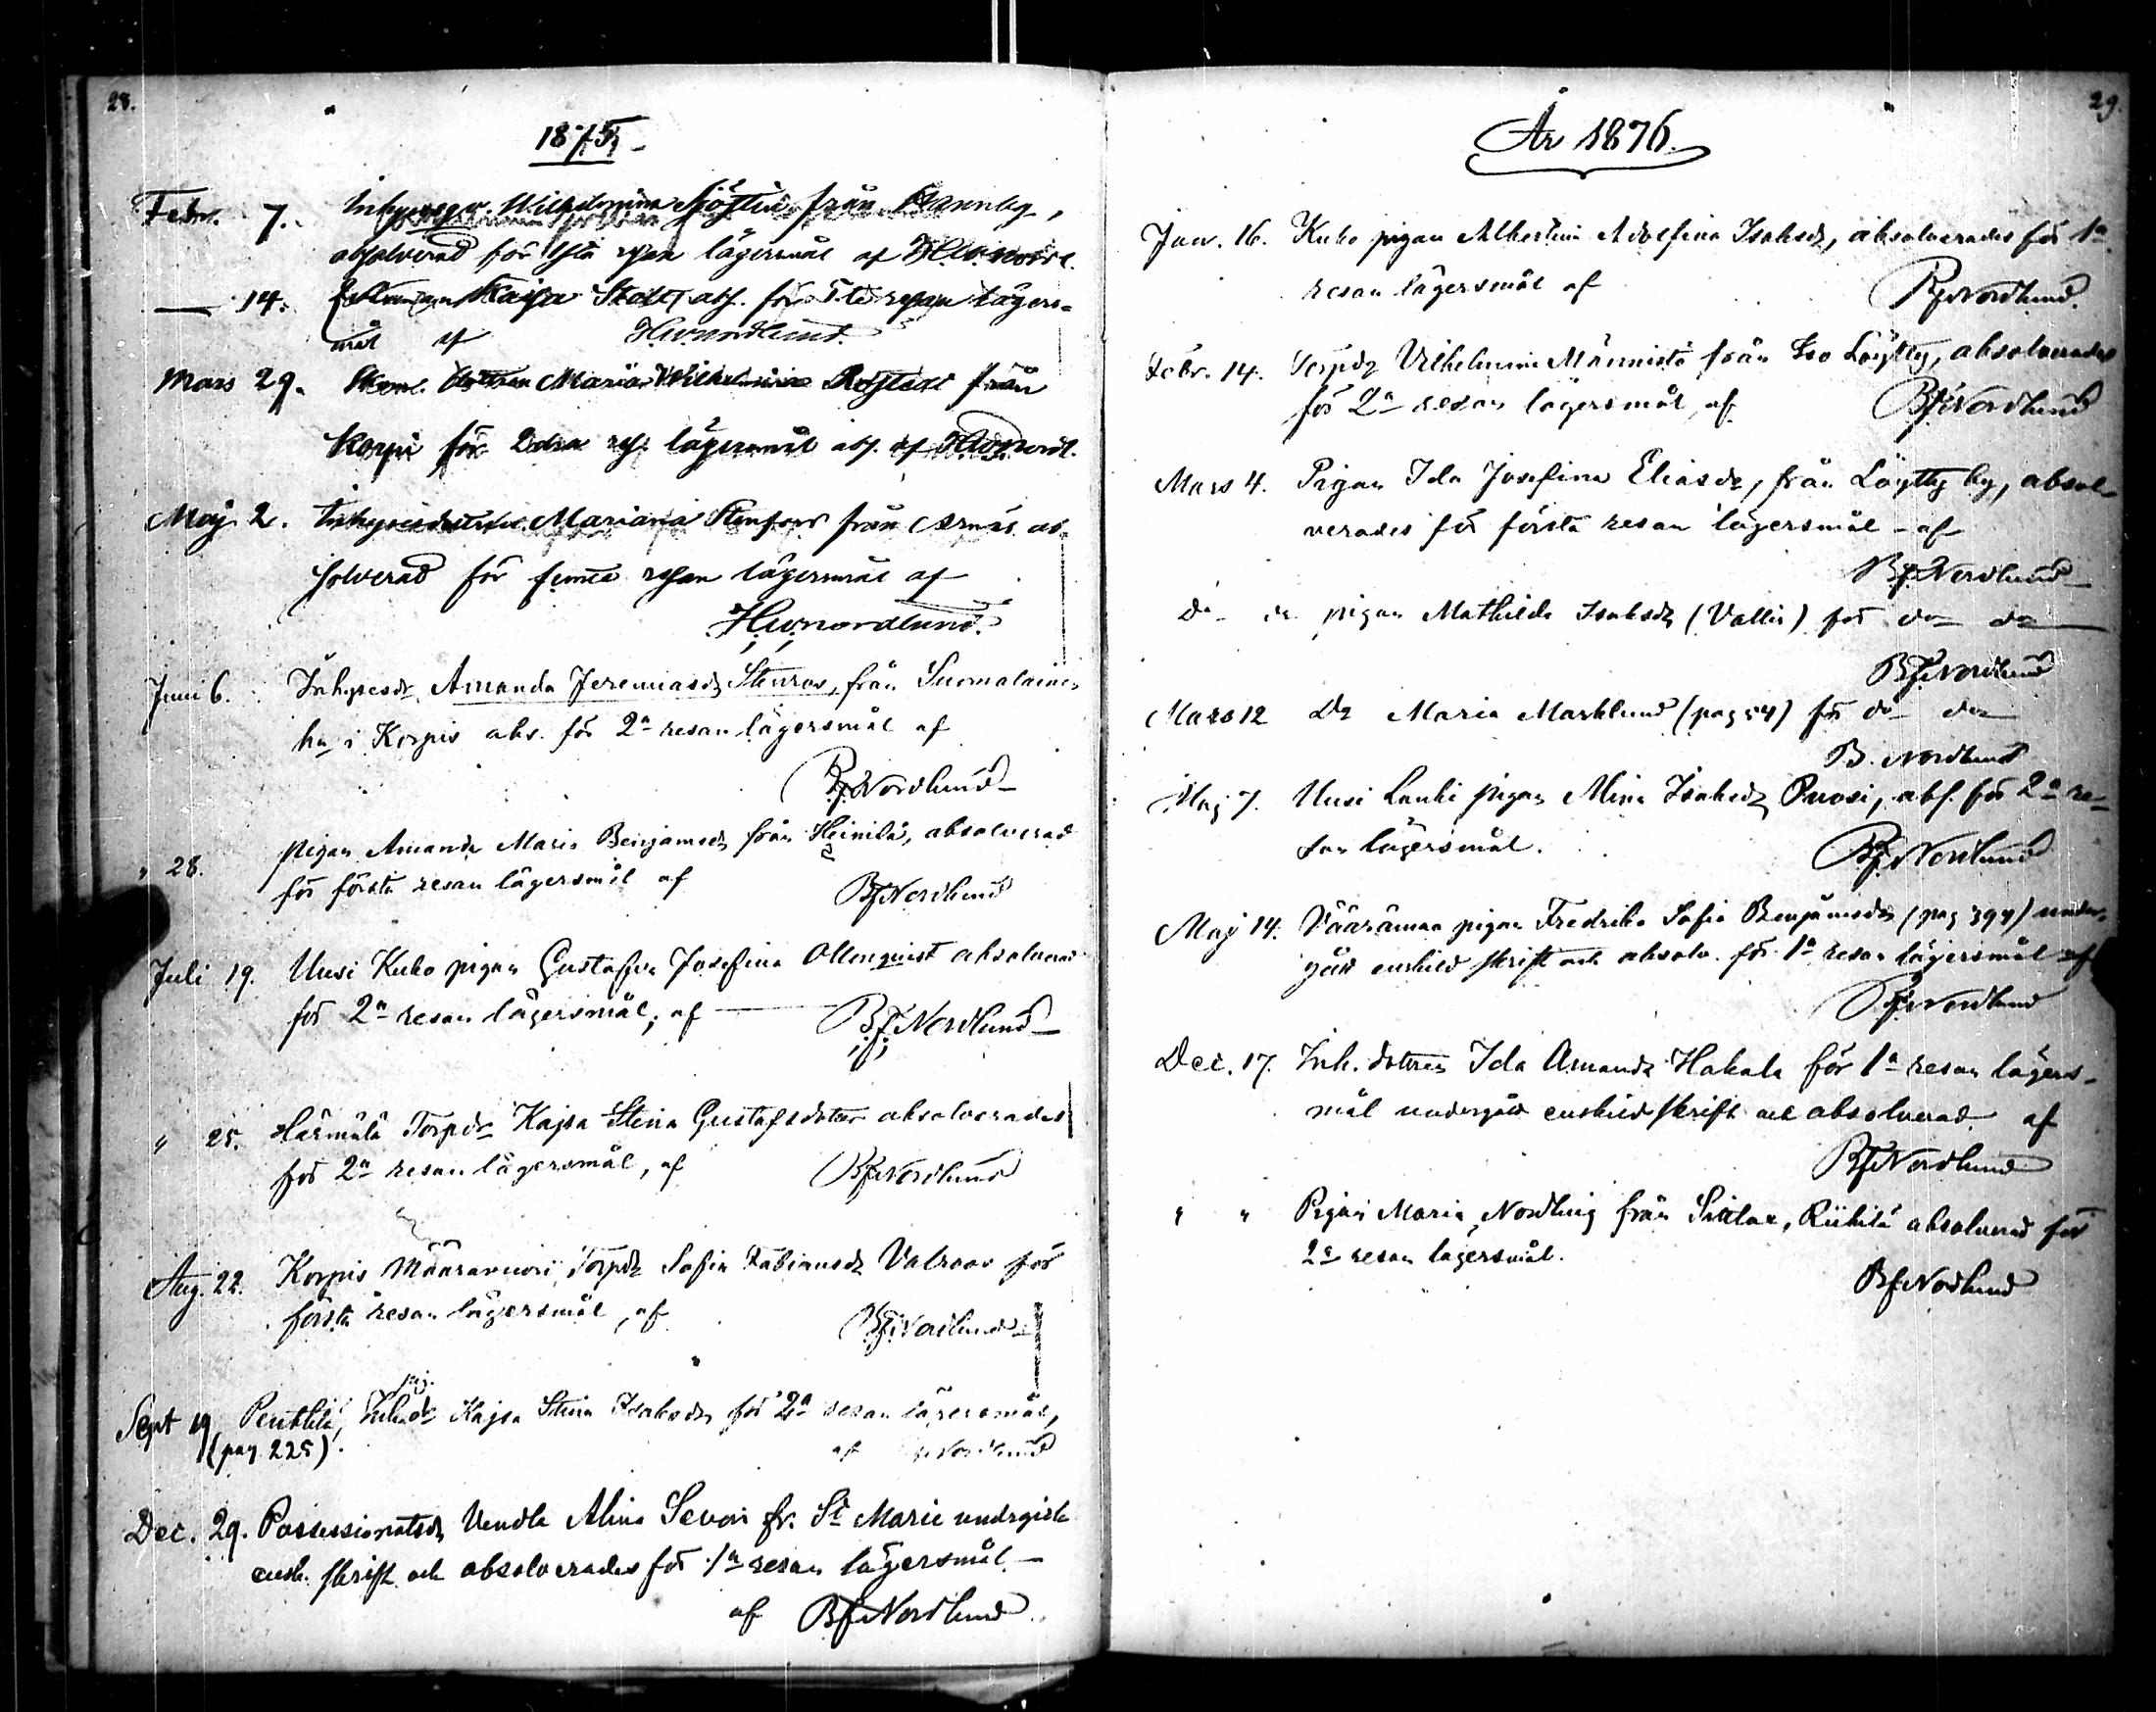 28.
1875
Febr. 7. Wilhelmina Sjöstén från
absolverad för resan lägersmål af
14. Kajsa abs. för 5te resan lägers-
mål af Hwnordlund.
Mars 29. Maria Wilhelmina från
Korpi för 2dra res. lägersmål abs. af
Maj 2. Mariana Stenfors från ab-
solverad för femte resan lägersmål af
Hwnordlund.
Juni 6. Inhysesdr Amanda Jeremiasdr Stenros, från Suomalainen
i Korpis abs. för 2a resan lägersmål af
BfNordlund
" 28. pigan Amanda Maria Benjamsdr från Heinilä, absolverad
för första resan lägersmål af BfNordlund
Juli 19. Uusi Kuho pigan Gustafva Josefina Ollenqvist absolverad
för 2a resan lägersmål, af BfNordlund
" 25. Härmälä Torpdr Kajsa Stina Gustafsdotter absolverades
för 2a resan lägersmål, af BfNordlund
Aug. 22. Korpis Torpdr Sofia Fabiansdr Valroos för
första resan lägersmål, af BfNordlund
pig.
Sept 19, Penttilä, Kajsa Stina Isaksdr för 2a resan lägersmål,
(pag. 225). af BfNordlund
Dec. 29. Possessionatsdr Vendla Alina Sevon fr. St Marie undergick
ensk. skrift och absolverades för 1a resan lägersmål
af BfNordlund
29.
År 1876.
Jan. 16. Kuho pigan Albertina Adolfina Isaksdr, absolverades för 1a
resan lägersmål af BfNordlund
Febr. 14. Torpdr Vilhelmina Männistö från Iso Löytty, absolverades
för 2a resan lägersmål, af BfNordlund
Mars 4. Pigan Ida Josefina Eliasdr, från Löytty by, absol-
verades för första resan lägersmål af
BfNordlund
do do pigan Mathilda Isaksdr (Vallin) för do do
BfNordlund
Mars 12 Do Maria Marklund (pag 54) för do do
B. Nordlund
Maj 7. Uusi Lauki pigan Mina Isaksdr Puosi, abs. för 2a re-
san lägersmål. BfNordlund
Maj 14. Vääräinmaa pigan Fredrika Sofia Benjamsdr (pag 394) under-
gått enskild skrift och absolv. för 1a resan lägersmål af
BfNordlund
Dec. 17. Inh. dottren Ida Amanda Hakala för 1a resan lägers-
mål undergått enskild skrift och absolverad af
BfNordlund
" " Pigan Maria Nordling från Sittlax, Riihilä absolverad för
2a resan lägersmål.
BfNordlund